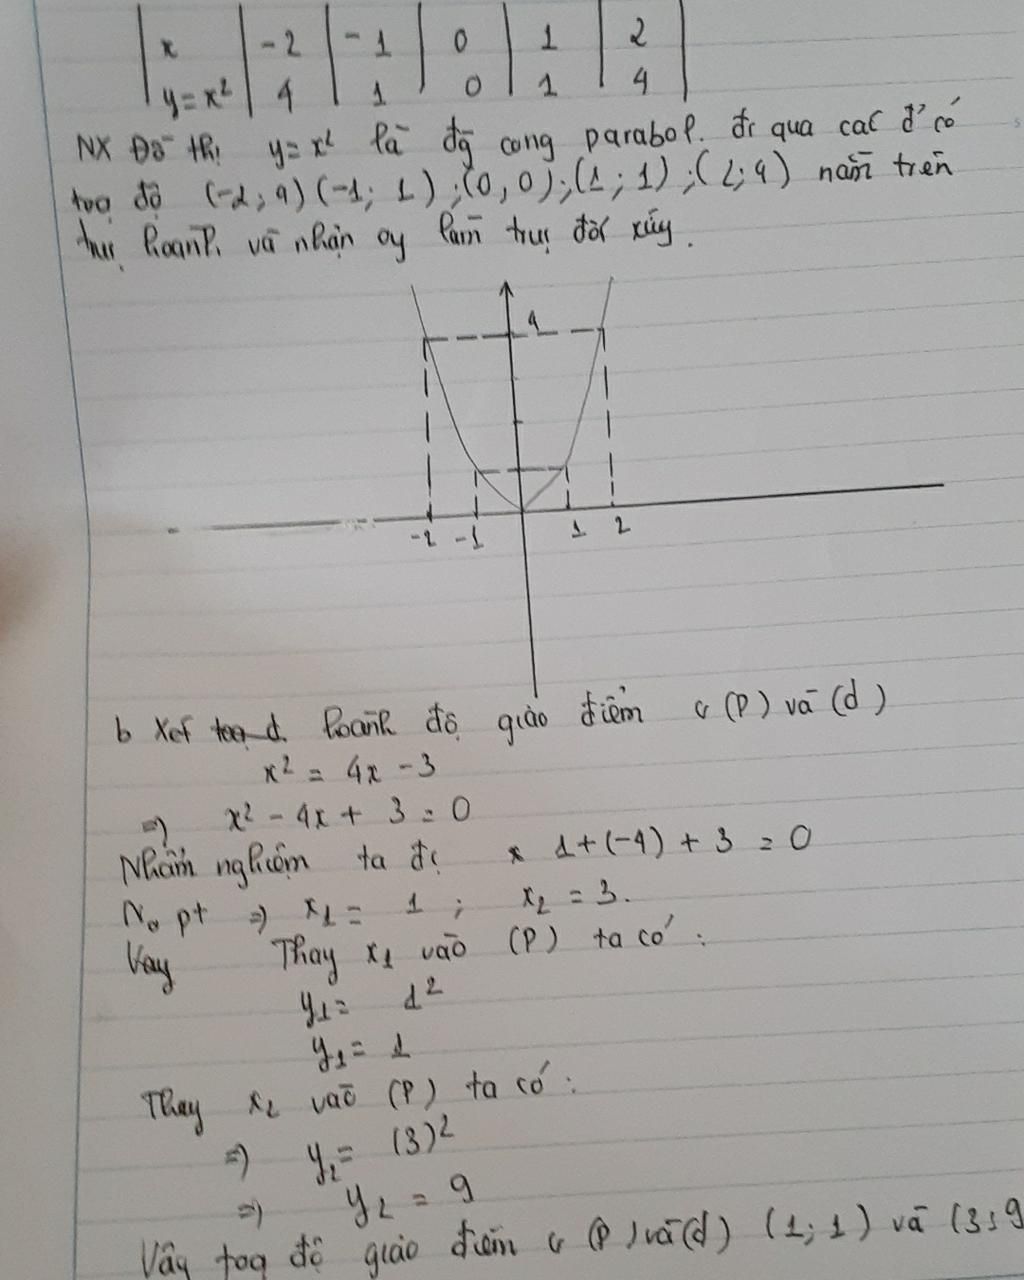 x | -2 | -1 | 0 | 1 | 2
y = x² | 4 | 1 | 0 | 1 | 4
NX Đồ thị y = x² là đg cong parabol. đi qua các đ' có
toạ độ (-2; 4) (-1; 1); (0, 0); (1; 1); (2; 4) nằm trên
trục hoành. và nhận oy làm trục đối xứg.
4
-2 -1 1 2
b Xét hoành độ giao điểm (P) và (d)
x² = 4x - 3
=> x² - 4x + 3 = 0
Nhẩm nghiệm ta đc 1 + (-4) + 3 = 0
No pt => x₁ = 1 ; x₂ = 3.
Vay Thay x₁ vào (P) ta có :
y₁ = 1²
y₁ = 1
Thay x₂ vào (P) ta có :
=> y₂ = (3)²
=> y₂ = 9
Vậy toạ độ giao điểm (P) và (d) (1; 1) và (3; 9